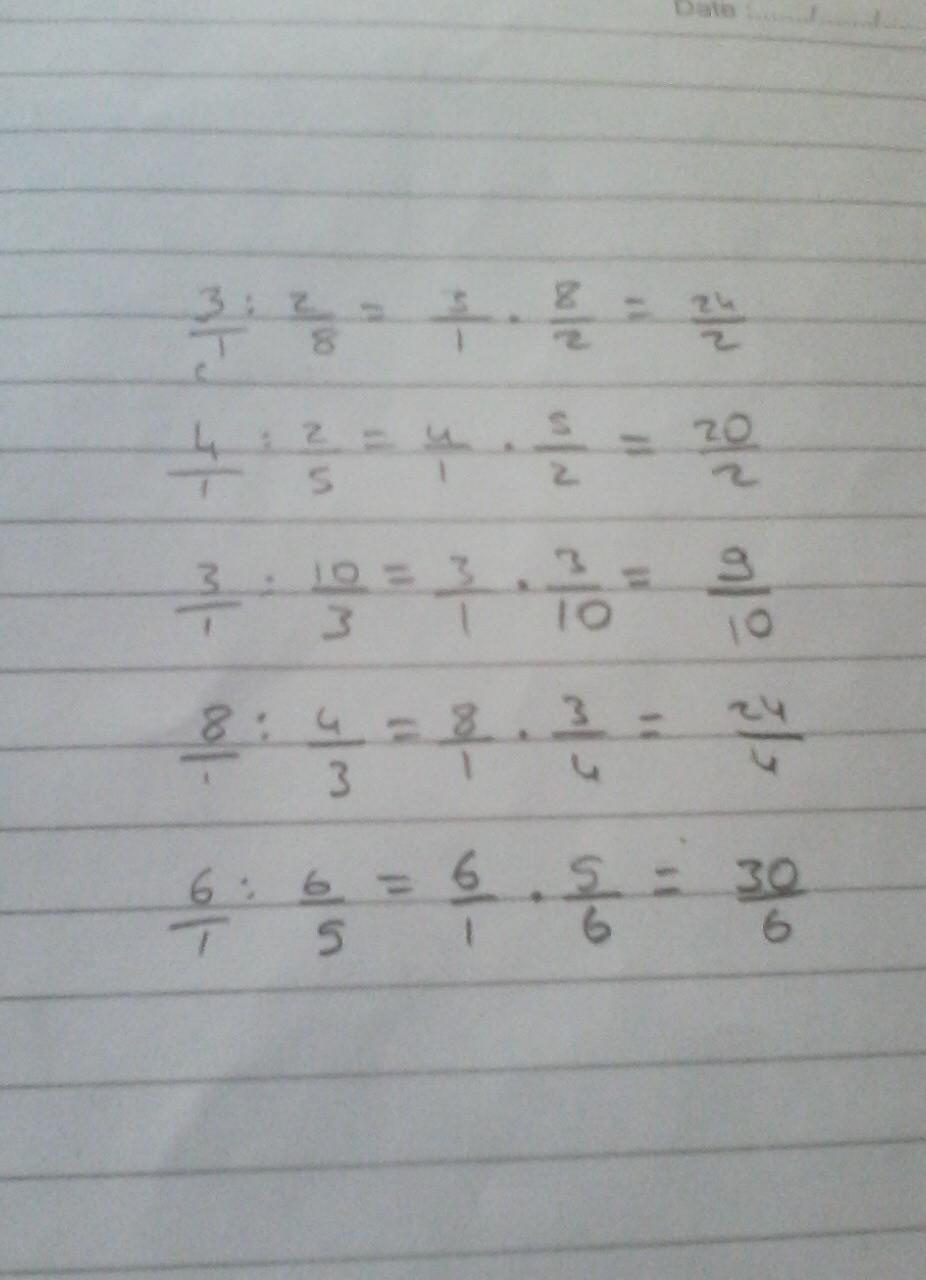 Date :....../....../....
3/1 : 2/8 = 3/1 . 8/2 = 24/2
4/1 : 2/5 = 4/1 . 5/2 = 20/2
3/1 : 10/3 = 3/1 . 3/10 = 9/10
8/1 : 4/3 = 8/1 . 3/4 = 24/4
6/1 : 6/5 = 6/1 . 5/6 = 30/6